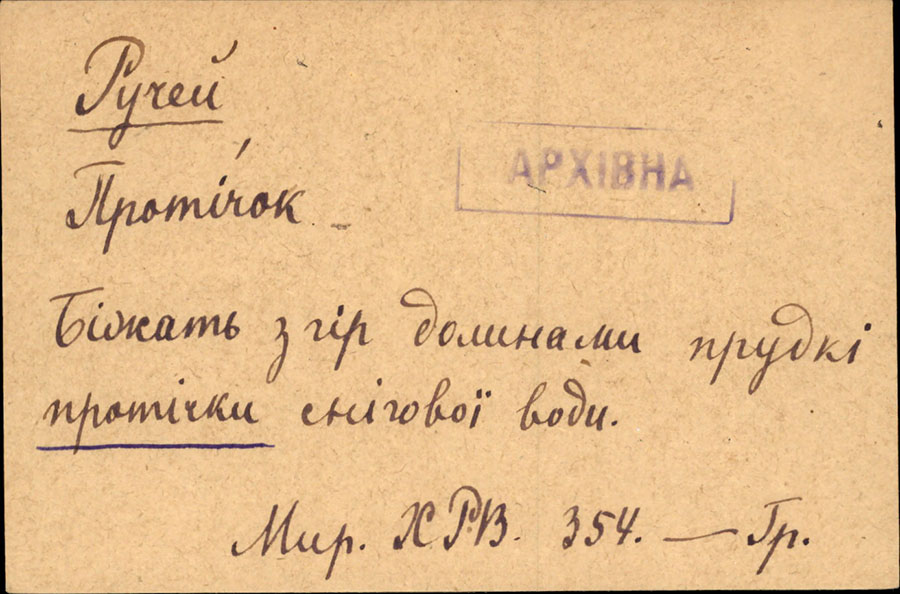 Ручей
АРХІВНА
Проті́чок
Біжать з гір долинами прудкі
протічки снігової води.
Мир. ХРВ. 354. — Гр.